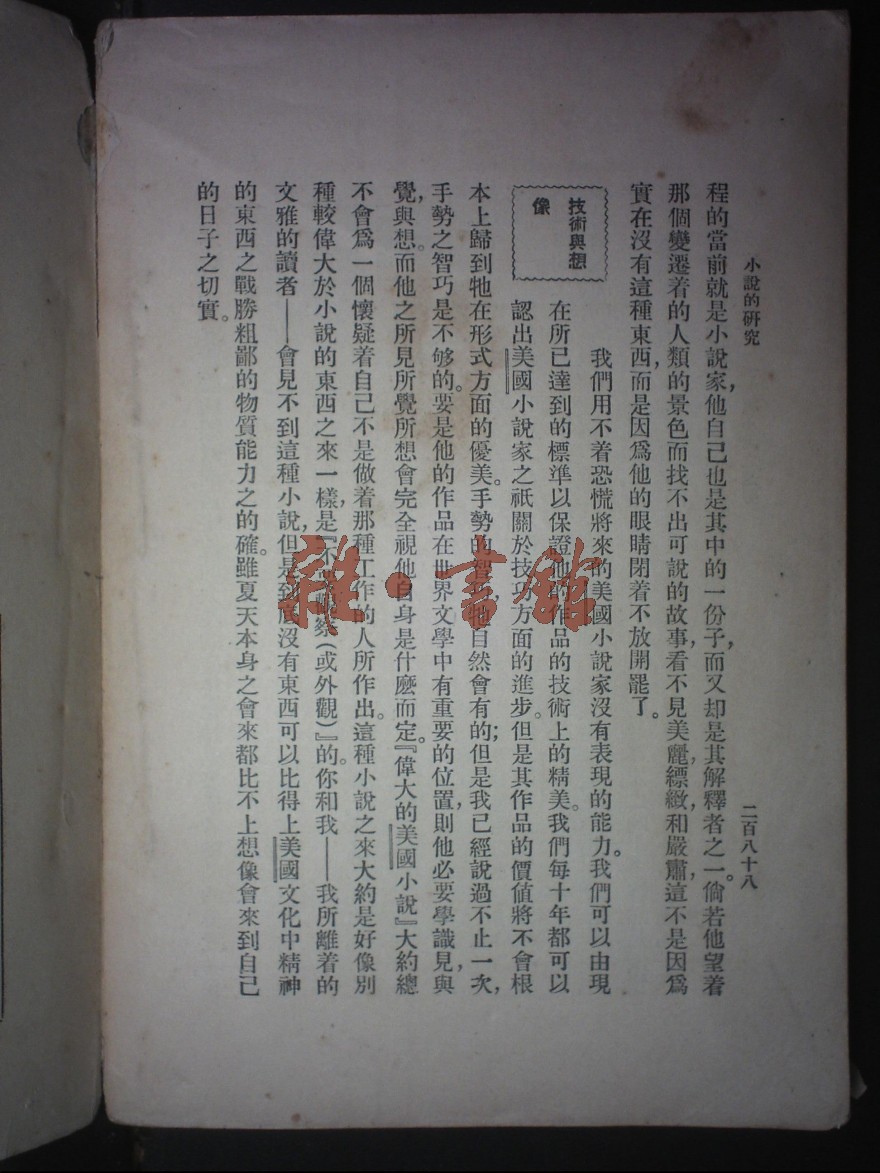 小說的研究
二百八十八
程的當前就是小說家，他自己也是其中的一份子，而又却是其解釋者之一。倘若他望着
那個變遷着的人類的景色而找不出可說的故事，看不見美麗，縹緻，和嚴肅，這不是因爲
實在沒有這種東西，而是因爲他的眼睛閉着不放開罷了。
技術與想
像
我們用不着恐慌將來的美國小說家沒有表現的能力。我們可以由現
在所已達到的標準以保證他的作品的技術上的精美。我們每十年都可以
認出美國小說家之祇關於技巧方面的進步。但是其作品的價值將不會根
本上歸到牠在形式方面的優美。手勢的智巧，牠自然會有的；但是我已經說過不止一次，
手勢之智巧是不够的。要是他的作品在世界文學中有重要的位置，則他必要學識見，與
覺，與想。而他之所見所覺所想會完全視他自身是什麼而定。『偉大的美國小說』大約總
不會爲一個懷疑着自己不是做着那種工作的人所作出。這種小說之來大約是好像別
種較偉大於小說的東西之來一樣，是『不　觀察（或外觀）』的。你和我——我所離着的
文雅的讀者——會見不到這種小說，但是到底沒有東西可以比得上美國文化中精神
的東西之戰勝粗鄙的物質能力之的確。雖夏天本身之會來都比不上想像會來到自己
的日子之切實。
雜·書館